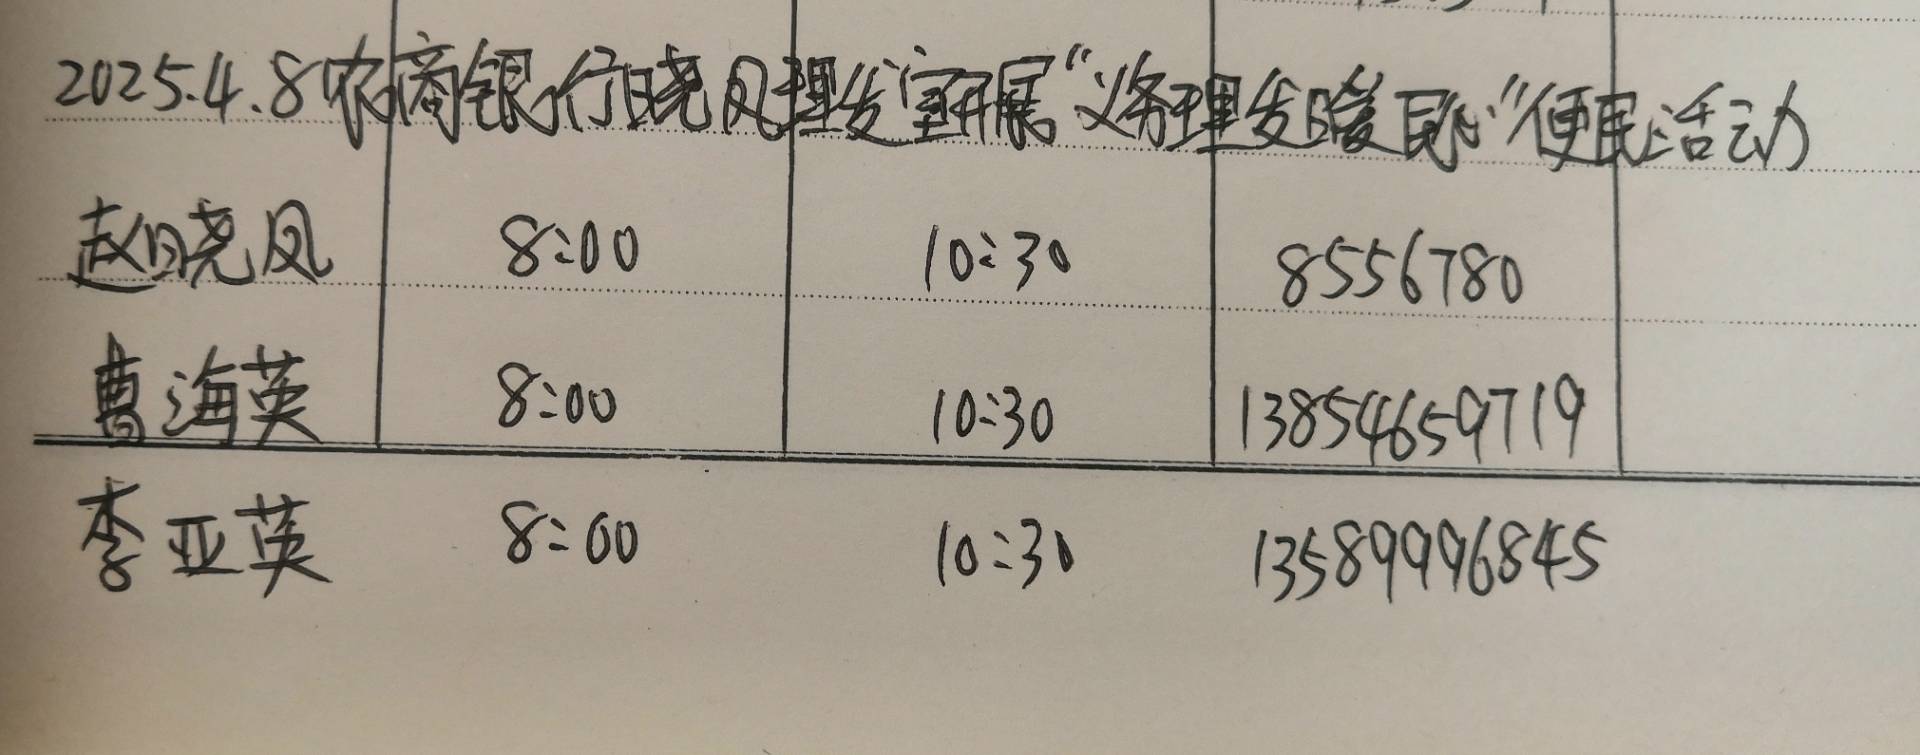 2025.4.8农商银行晓凤理发室开展“义务理发暖民心”便民活动
赵晓凤 8:00 10:30 8556780
曹海英 8:00 10:30 13854659719
李亚英 8:00 10:30 13589996845